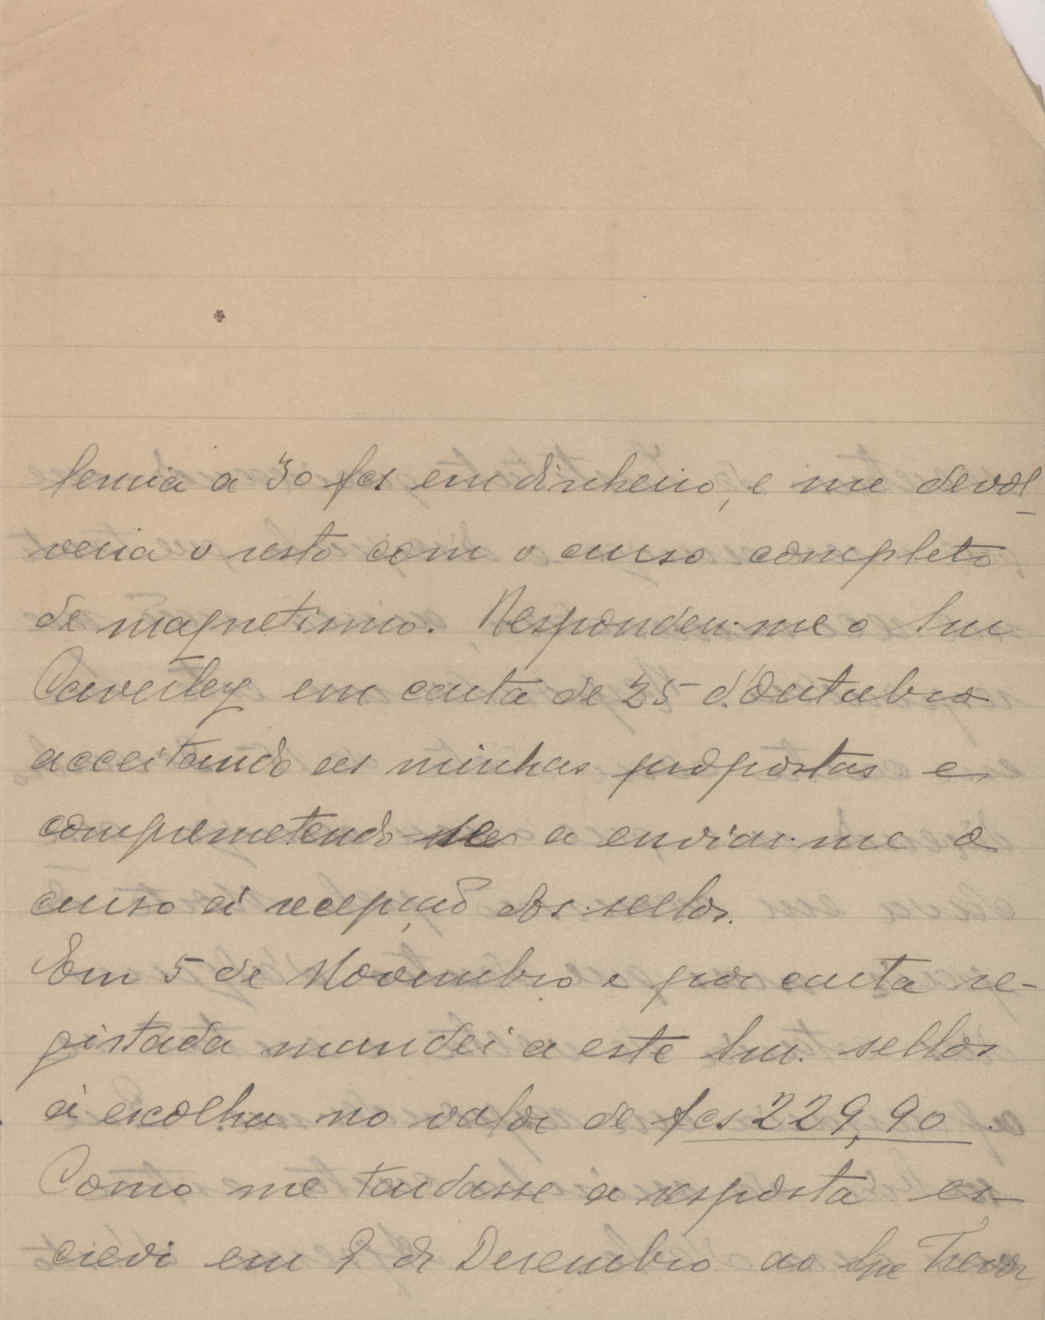 a 30 fcs em dinheiro, e me devol-
veria o resto com o curso completo
de magnetismo. Respondeu-me o Snr
em carta de 25 d'Outubro
acceitando as minhas propostas e
comprometendo-se a enviar-me o
curso á recepção dos sellos.
Em 5 de Novembro e por carta re-
gistada mandei a este Snr. sellos
á escolha no valor de fcs 229,90.
Como me tardasse a resposta es-
crevi em 9 de Desembro ao Snr Trevor